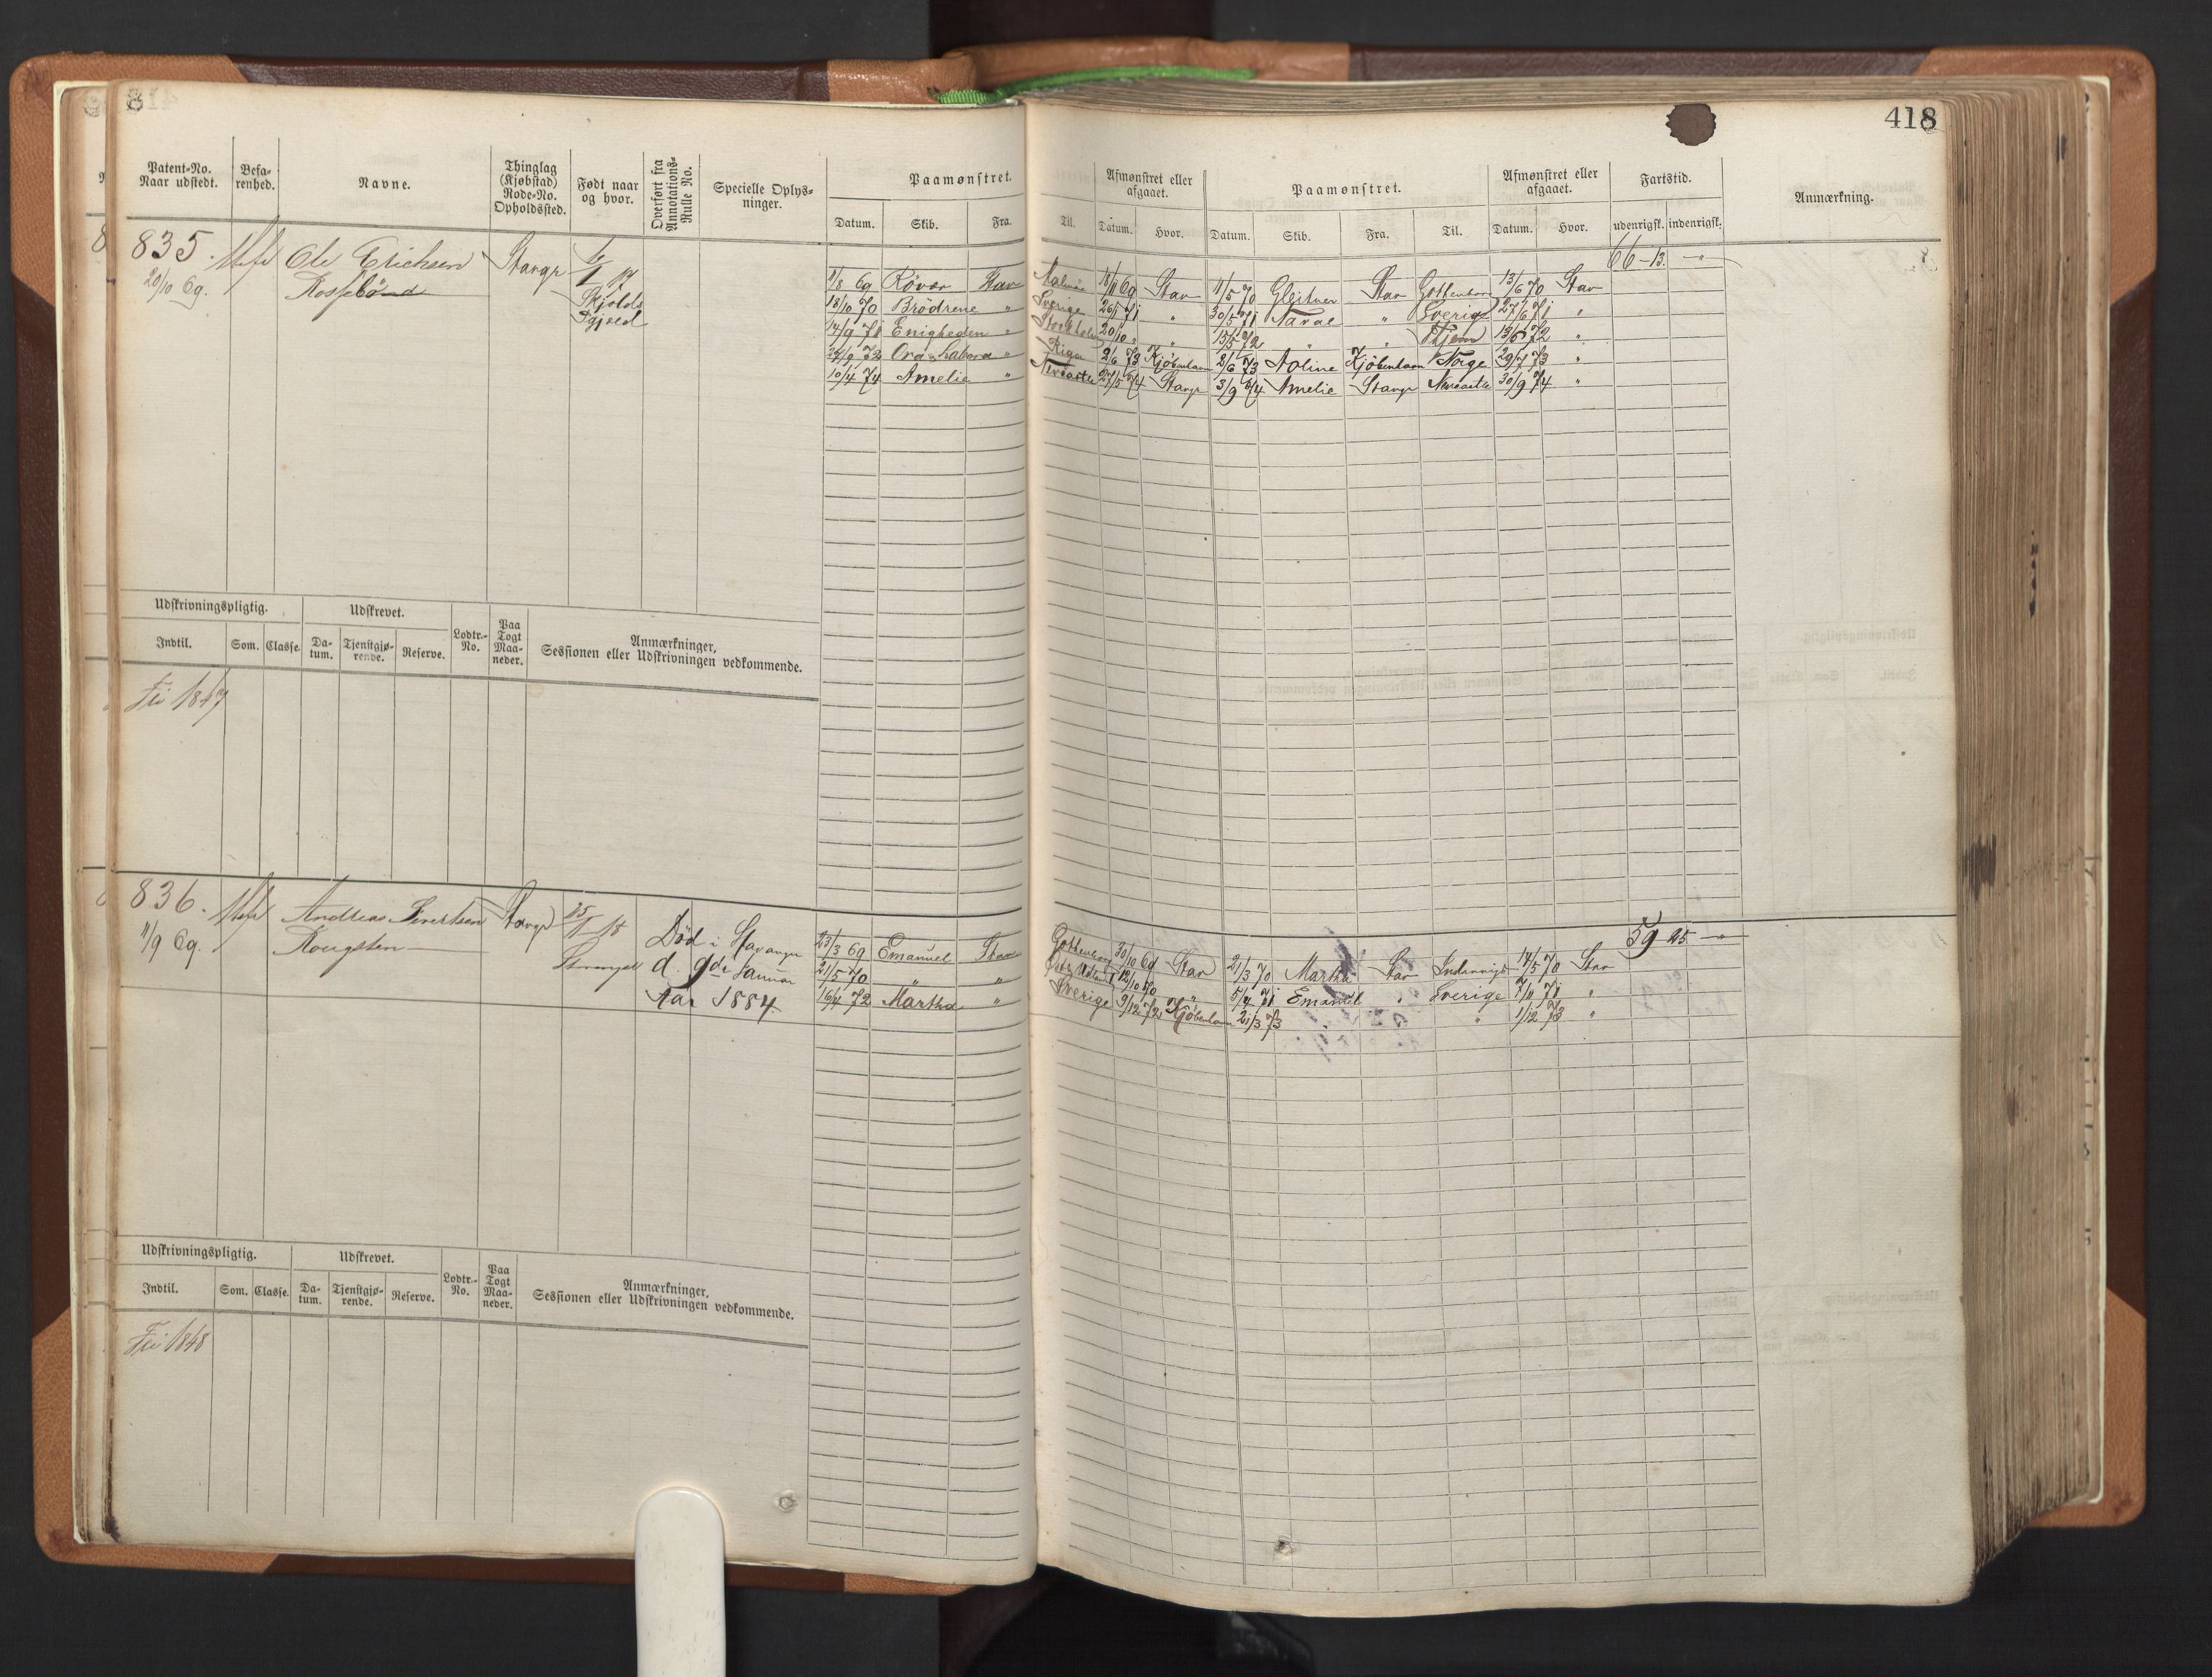 418
Patent-No. Naar udstedt.
Befa-renhed.
Navne.
Thinglag (Kjøbstad) Rode-No. Opholdssted.
Født naar og hvor.
Overført fra Annotations-Rulle No.
Specielle Oplys-ninger.
Paamønstret.
Datum. Skib. Fra. Til.
Afmønstret eller afgaaet.
Datum. Hvor.
Paamønstret.
Datum. Skib. Fra. Til.
Afmønstret eller afgaaet.
Datum. Hvor.
Fartstid.
udenrigsk. indenrigsk.
Anmærkning.
835. Ole Erichsen Stavgr 66-13. -"-
20/10 69. Rossebønd
Skjolds
Skjold
11/8 69 Røvær Stav 18/11 69 Stav 11/5 70 Gleitner Stav Gottenborg 13/6 70 Stav
18/10 70 Brødrene " Sverige 26/5 71 " 30/5 71 Naval " Sverig 27/6 71 "
14/9 71 Enigheden " Stockholm 20/10 " " 15/5 72 " " 13/6 72 "
24/9 72 Ora & Labora " Riga 2/6 73 Kjøbenhavn 2/6 73 Aoline Kjøbenhavn Norge 29/7 73 "
10/4 74 Amelie " Newcastle 27/5 74 Stavgr 3/9 74 Amelie Stavgr Newcastle 30/9 74 "
Udskrivningspligtig. Udskrevet. Lodtr.-No. Paa Togt Maa-neder. Anmærkninger,
Indtil. Som. Classe. Da-tum. Tjenstgjø-rende. Reserve. Sessionen eller Udskrivningen vedkommende.
Fri 1847
836. Andreas Sivertsen Stavgr 59 25 -"-
11/9 69. Rougsten
Død i Stavanger
d. 9de Januar
Aar 1884.
23/3 69 Emanuel Stav Gottenborg 30/10 69 Stav 21/3 70 Martha Stav Indenrigs 14/5 70 Stav
21/5 70 " " 12/10 70 " 5/4 71 Emanuel " Sverige 7/11 71 "
16/4 72 Martha " Sverige 9/12 72 Kjøbenhavn 21/3 73 " " 1/12 73 "
Udskrivningspligtig. Udskrevet. Lodtr.-No. Paa Togt Maa-neder. Anmærkninger,
Indtil. Som. Classe. Da-tum. Tjenstgjø-rende. Reserve. Sessionen eller Udskrivningen vedkommende.
Fri 1848